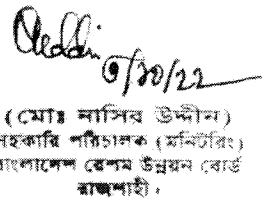 ৩/১০/২২
(মোঃ নাসির উদ্দীন)
সহকারি পরিচালক (মনিটরিং)
বাংলাদেশ রেশম উন্নয়ন বোর্ড
রাজশাহী।